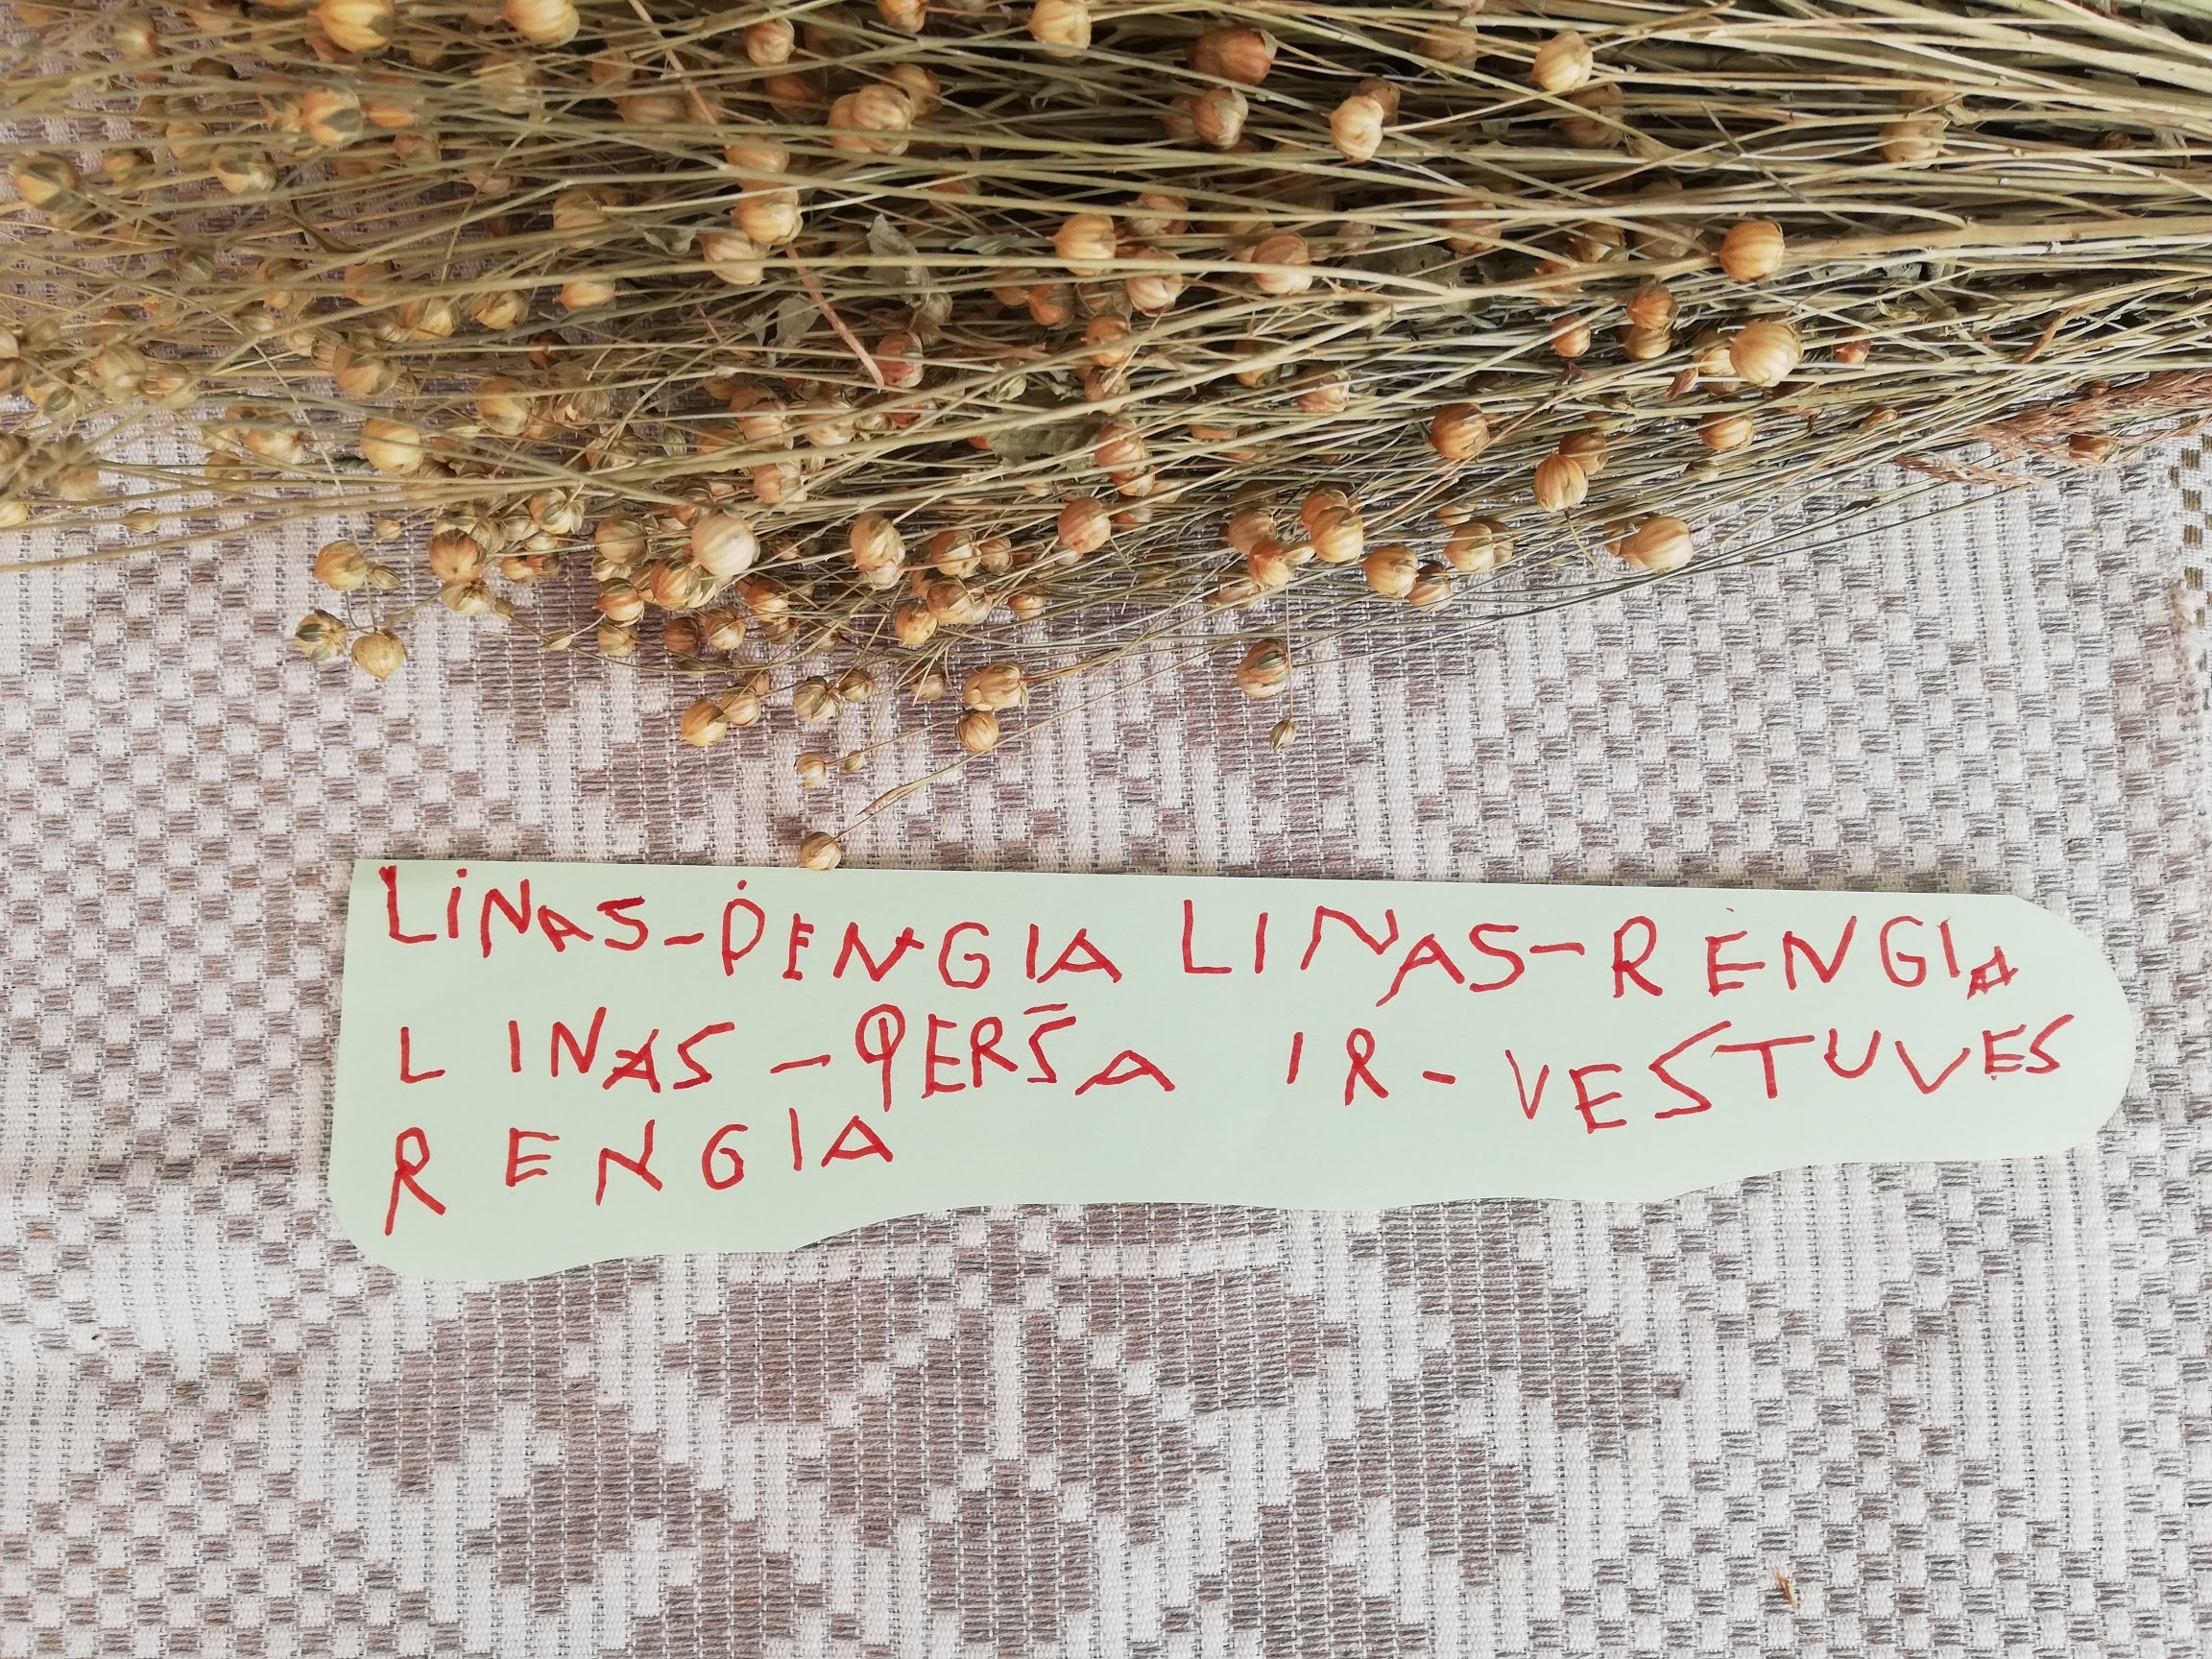 LINAS-DENGIA LINAS-RENGIA
LINAS-PERŠA IR-VESTUVES
RENGIA